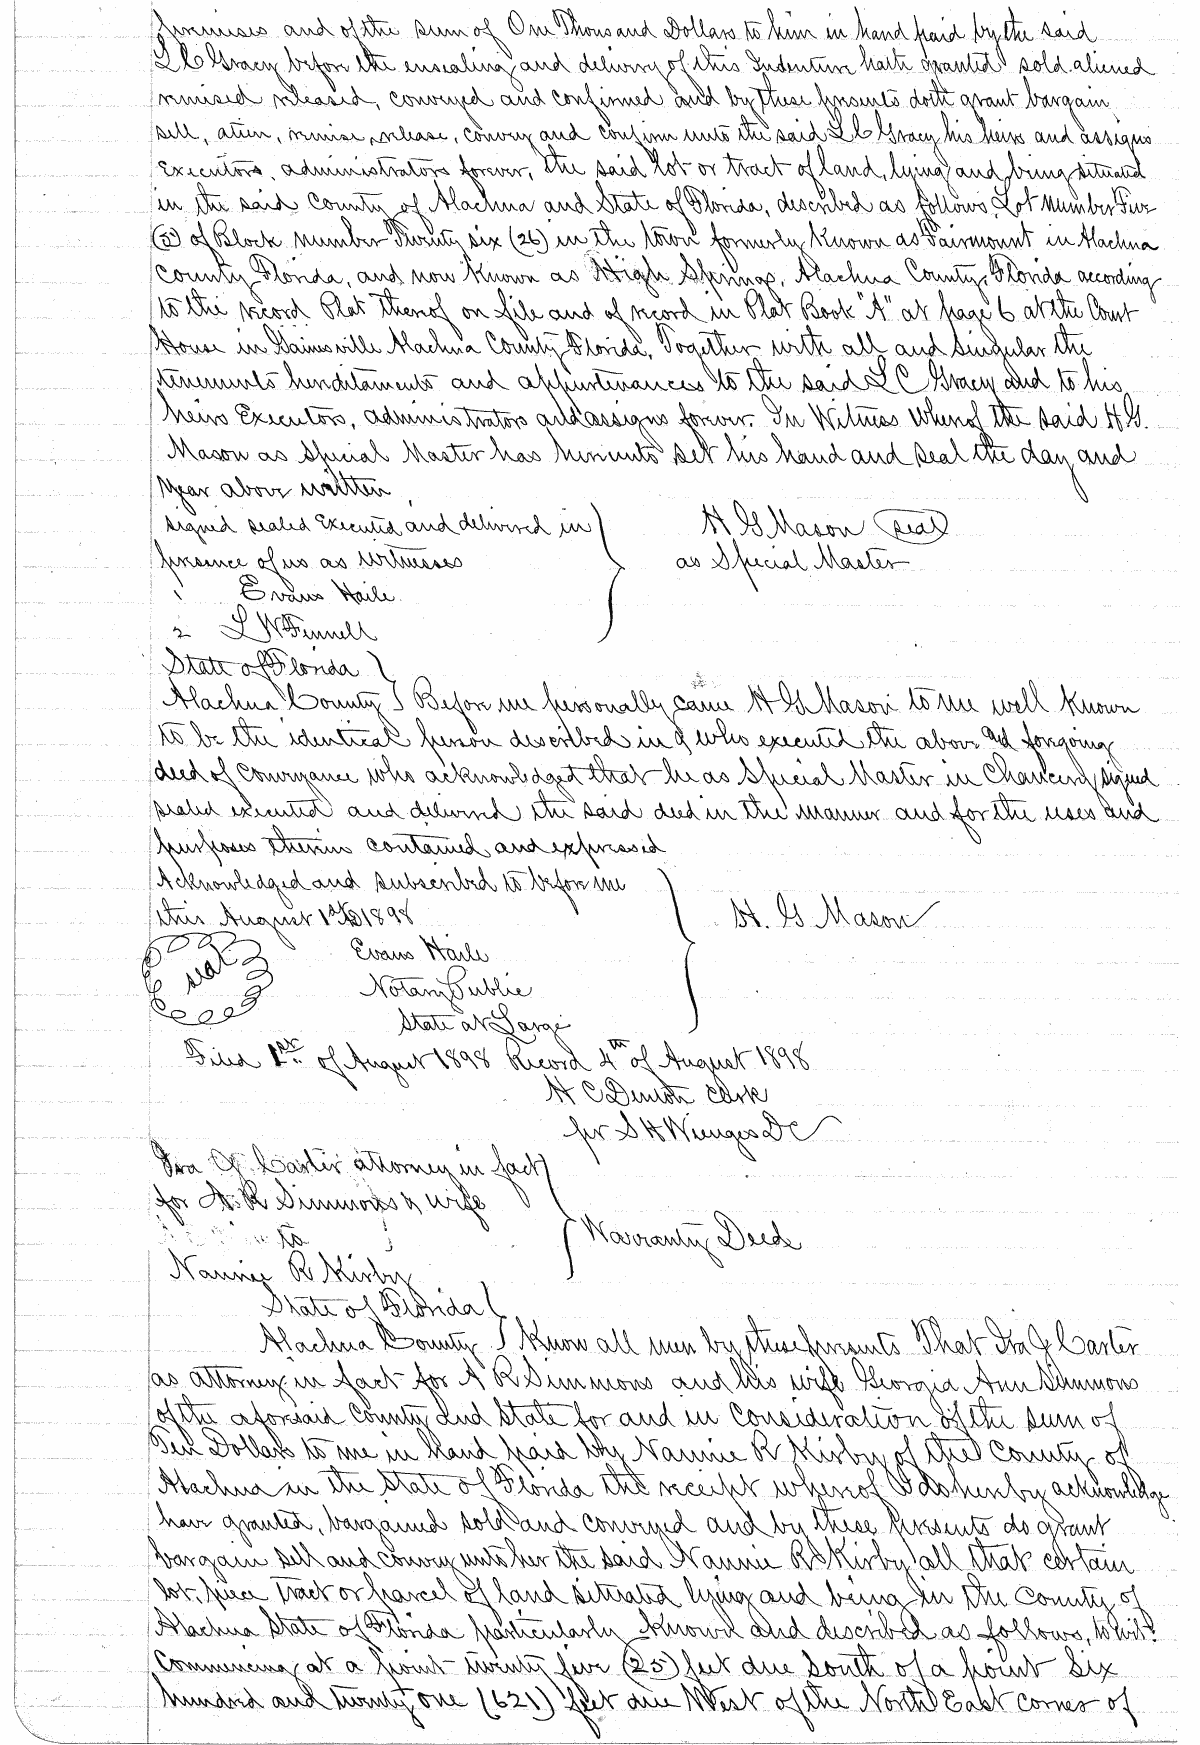 premises and of the sum of One Thousand Dollars to him in hand paid by the said
L C Gracy before the ensealing and delivery of this Indenture hath granted sold aliened
remised released, conveyed and confirmed and by these presents doth grant bargain
sell, alien, remise release, convey and confirm unto the said L C Gracy his heirs and assigns
Executors, administrators forever, the said lot or tract of land, lying and being situated
in the said County of Alachua and State of Florida, described as follows, Lot Number Five
(5) of Block Number Twenty six (26) in the town formerly Known as Fairmount in Alachua
County Florida, and now Known as High Springs, Alachua County, Florida according
to the record Plat thereof on file and of record in Plat Book "A" at page 6 at the Court
House in Gainesville Alachua County Florida, Together with all and singular the
tenements hereditaments and appurtenances to the said L C Gracy and to his
heirs Executors, administrators and assigns forever. In Witness Whereof the said H.G.
Mason as Special Master has hereunto set his hand and seal the day and
year above written
signed sealed Executed and delivered in
presence of us as witnesses
H G Mason (seal)
as Special Master
1 Evans Haile
2 L W Fennell
State of Florida
Alachua County Before me personally came H G Mason to me well Known
to be the identical person described in & who executed the above and foregoing
deed of Conveyance who acknowledged that he as Special Master in Chancery signed
sealed executed and delivered the said deed in the manner and for the uses and
purposes therein contained and expressed
Acknowledged and subscribed to before me
this August 1st 1898
H. G Mason
seal
Evans Haile
Notary Public
State at Large
Filed 1st of August 1898 Record 4th of August 1898
H C Denton Clerk
per S H Wienges DC
Ira J Carter attorney in fact
for A. R Simmons & wife
to
Warranty Deed
Nannie R Kirby
State of Florida
Alachua County Know all men by these presents That Ira J Carter
as attorney in fact for A R Simmons and his wife Georgia Ann Simmons
of the aforesaid County and State for and in Consideration of the sum of
Ten Dollars to me in hand paid by Nannie R Kirby of the County of
Alachua in the State of Florida the receipt whereof I do hereby acknowledge
have granted, bargained sold and conveyed and by these Presents do grant
bargain sell and convey unto her the said Nannie R Kirby all that certain
lot, piece tract or parcel of land situated lying and being in the County of
Alachua State of Florida particularly Known and described as follows, to wit:
Commencing at a point twenty five (25) feet due South of a point Six
hundred and twenty one (621) feet due West of the North East corner of